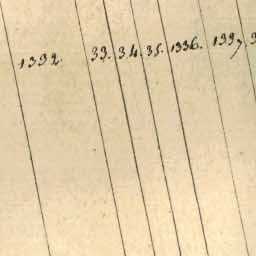 1332. 33. 34. 35. 1336. 1337